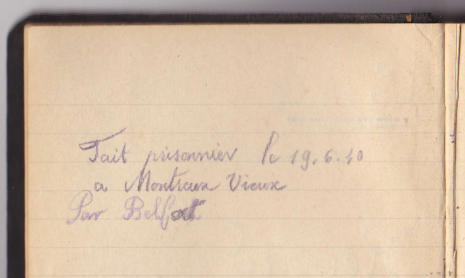 Fait prisonnier le 19.6.40
a Montreux Vieux
Par Belfort